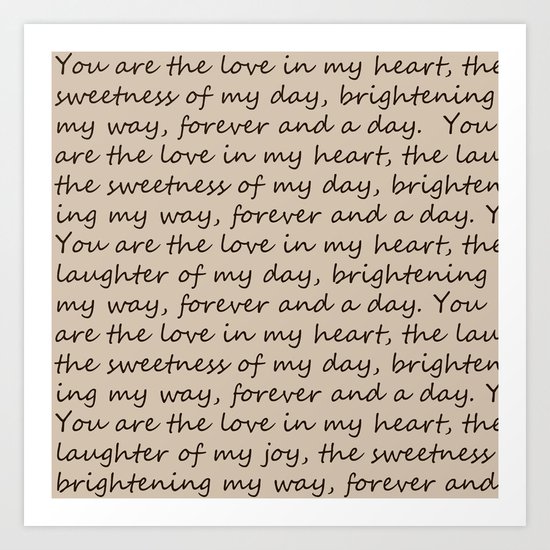 You are the love in my heart, the
sweetness of my day, brightening
my way, forever and a day. You
are the love in my heart, the lau
the sweetness of my day, brighten
ing my way, forever and a day. Y
You are the love in my heart, the
laughter of my day, brightening
my way, forever and a day. You
are the love in my heart, the lau
the sweetness of my day, brighten
ing my way, forever and a day. Y
You are the love in my heart, the
laughter of my joy, the sweetness
brightening my way, forever and